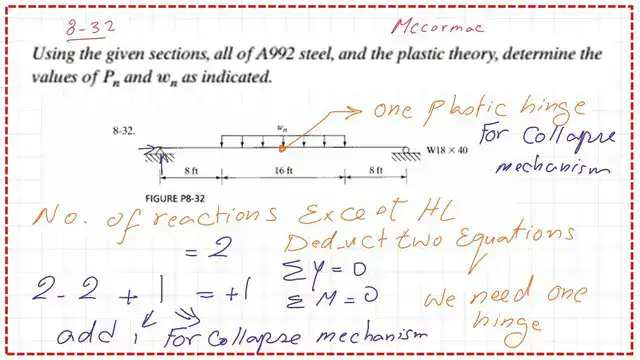 8-32 Mccormac
Using the given sections, all of A992 steel, and the plastic theory, determine the
values of Pn and wn as indicated.
one plastic hinge
For Collapse
mechanism
8-32.
wn
W18 × 40
8 ft 16 ft 8 ft
FIGURE P8-32
No. of reactions Except HL
= 2 Deduct two Equations
ΣY = 0
2 - 2 + 1 = +1 ΣM = 0 We need one
hinge
add 1 For Collapse mechanism